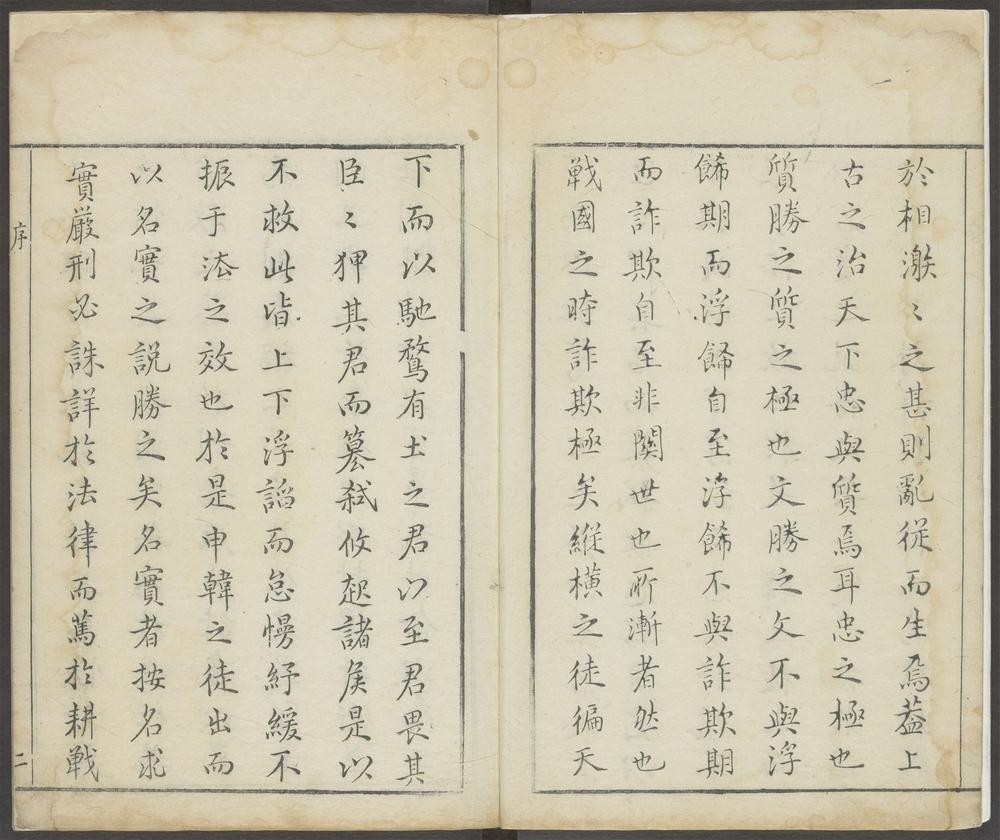 於相激〻之甚則亂從而生焉蓋上
古之治天下忠與質焉耳忠之極也
質勝之質之極也文勝之文不與浮
餙期而浮餙自至浮餙不與詐欺期
而詐欺自至非關世也所漸者然也
戰國之時詐欺極矣縱橫之徒徧天
下而以馳騖有土之君以至君畏其
臣〻狎其君而篡弑攸起諸侯是以
不救此皆上下浮謟而怠慢紓緩不
振于法之效也於是申韓之徒出而
以名實之說勝之矣名實者按名求
實嚴刑必誅詳於法律而篤於耕戰
序
二